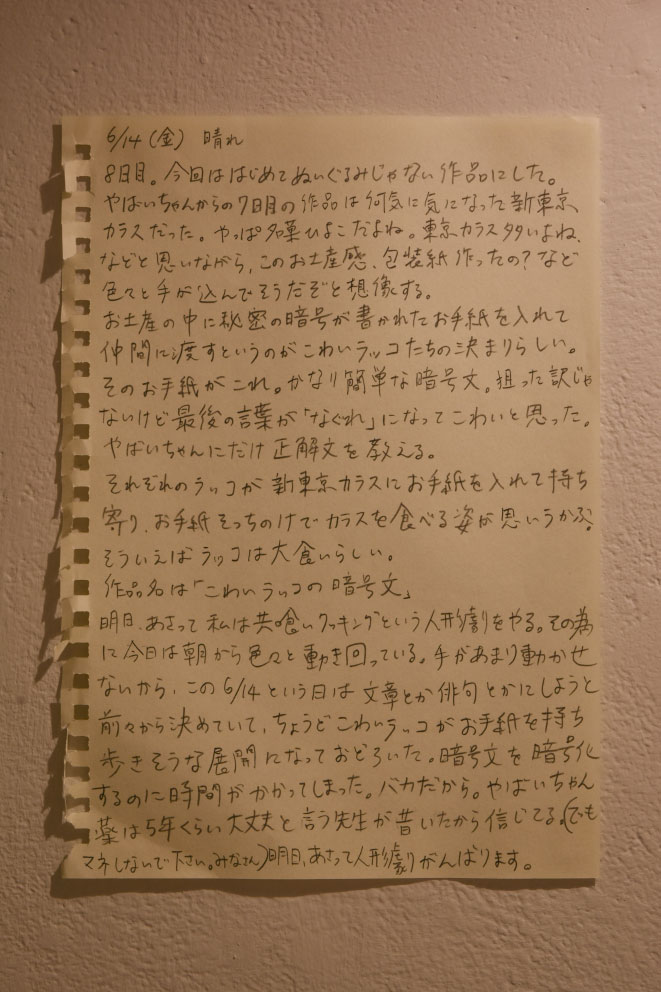 6/14(金) 晴れ
8日目。今回ははじめてぬいぐるみじゃない作品にした。
やばいちゃんからの7日目の作品は何気に気になった新東京
カラスだった。やっぱ名菓ひよこだよね。東京カラス多いよね、
などと思いながら、このお土産感、包装紙作ったの?など
色々と手が込んでそうだぞと想像する。
お土産の中に秘密の暗号が書かれたお手紙を入れて
仲間に渡すというのがこわいラッコたちの決まりらしい。
そのお手紙がこれ。かなり簡単な暗号文。狙った訳じゃ
ないけど最後の言葉が「なぐれ」になってこわいと思った。
やばいちゃんにだけ正解文を教える。
それぞれのラッコが新東京カラスにお手紙を入れて持ち
寄り、お手紙そっちのけでカラスを食べる姿が思いうかぶ。
そういえばラッコは大食いらしい。
作品名は「こわいラッコの暗号文」
明日、あさって私は共喰いクッキングという人形劇をやる。その為
に今日は朝から色々と動き回っている。手があまり動かせ
ないから、この6/14という日は文章とか俳句とかにしようと
前々から決めていて、ちょうどこわいラッコがお手紙を持ち
歩きそうな展開になっておどろいた。暗号文を暗号化
するのに時間がかかってしまった。バカだから。やばいちゃん
薬は5年くらい大丈夫と言う先生が昔いたから信じてる。(でも
マネしないで下さい。みなさん)明日、あさって人形劇がんばります。